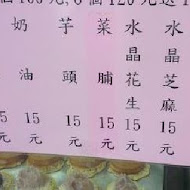 個100元,6個120元送1
水晶芝麻
15元
水晶花生
15元
菜脯
15元
芋頭
15元
奶油
15元